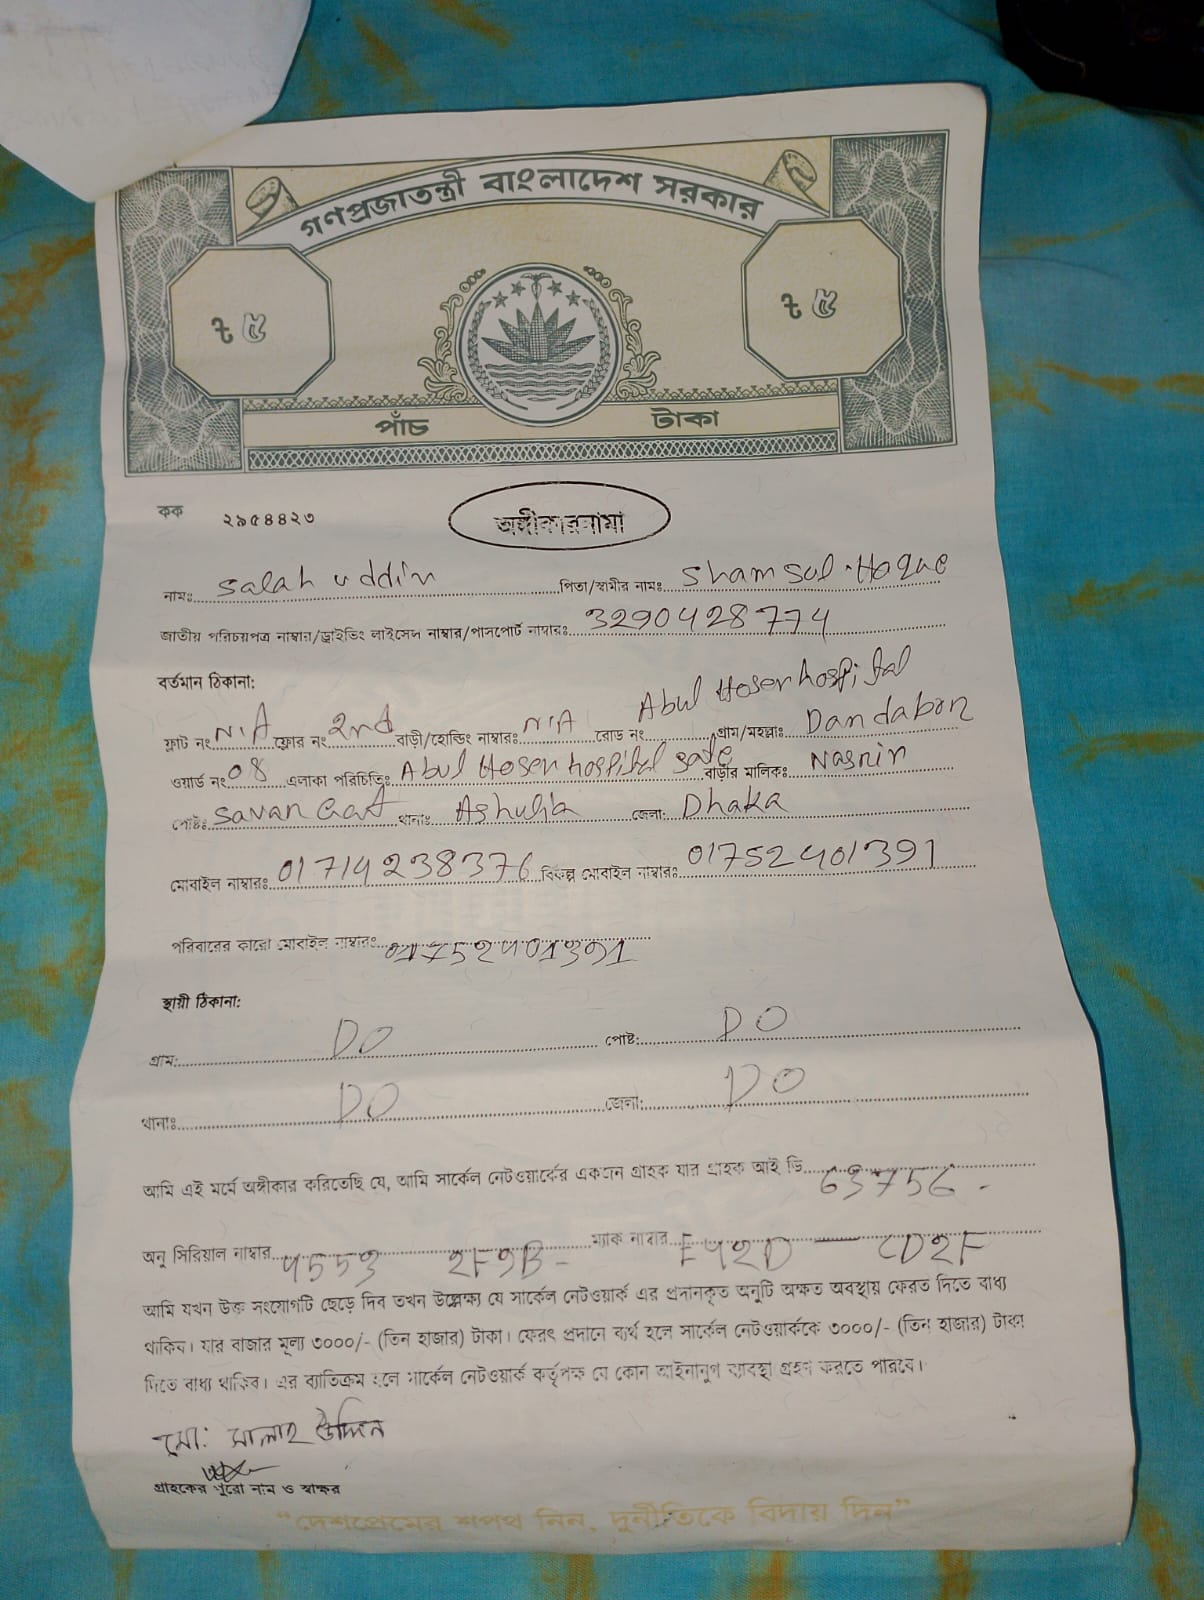 গণপ্রজাতন্ত্রী বাংলাদেশ সরকার
৳ ৫
৳ ৫
পাঁচ টাকা
কক ২৯৫৪৪২৩
অঙ্গীকারনামা
নামঃ Salah uddin পিতা/স্বামীর নামঃ Shamsul Hoque
জাতীয় পরিচয়পত্র নাম্বার/ড্রাইভিং লাইসেন্স নাম্বার/পাসপোর্ট নাম্বারঃ 3290428774
বর্তমান ঠিকানা:
ফ্লাট নং N/A ফ্লোর নং 2nd বাড়ী/হোল্ডিং নাম্বারঃ N/A রোড নং Abul Hosen hospital গ্রাম/মহল্লাঃ Dandabon
ওয়ার্ড নং 08 এলাকা পরিচিতিঃ Abul Hosen hospital বাড়ীর মালিকঃ Nasrin
পোষ্টঃ Savan Cant থানাঃ Ashulia জেলা: Dhaka
মোবাইল নাম্বারঃ 01714238376 বিকল্প মোবাইল নাম্বারঃ 01752401391
পরিবারের কারো মোবাইল নাম্বারঃ 01752401391
স্থায়ী ঠিকানা:
গ্রাম: DO পোষ্ট: DO
থানাঃ DO জেলা: DO
আমি এই মর্মে অঙ্গীকার করিতেছি যে, আমি সার্কেল নেটওয়ার্কের একজন গ্রাহক যার গ্রাহক আই ডি 63756
অনু সিরিয়াল নাম্বার 4553 2F9B - ম্যাক নাম্বার E42D — CD2F
আমি যখন উক্ত সংযোগটি ছেড়ে দিব তখন উল্লেক্ষ্য যে সার্কেল নেটওয়ার্ক এর প্রদানকৃত অনুটি অক্ষত অবস্থায় ফেরত দিতে বাধ্য
থাকিব। যার বাজার মূল্য ৩০০০/- (তিন হাজার) টাকা। ফেরৎ প্রদানে ব্যর্থ হলে সার্কেল নেটওয়ার্ককে ৩০০০/- (তিন হাজার) টাকা
দিতে বাধ্য থাকিব। এর ব্যতিক্রম হলে সার্কেল নেটওয়ার্ক কর্তৃপক্ষ যে কোন আইনানুগ ব্যবস্থা গ্রহন করতে পারবে।
মো: সালাহ উদ্দিন
গ্রাহকের পুরো নাম ও স্বাক্ষর
“দেশপ্রেমের শপথ নিন, দুর্নীতিকে বিদায় দিন”